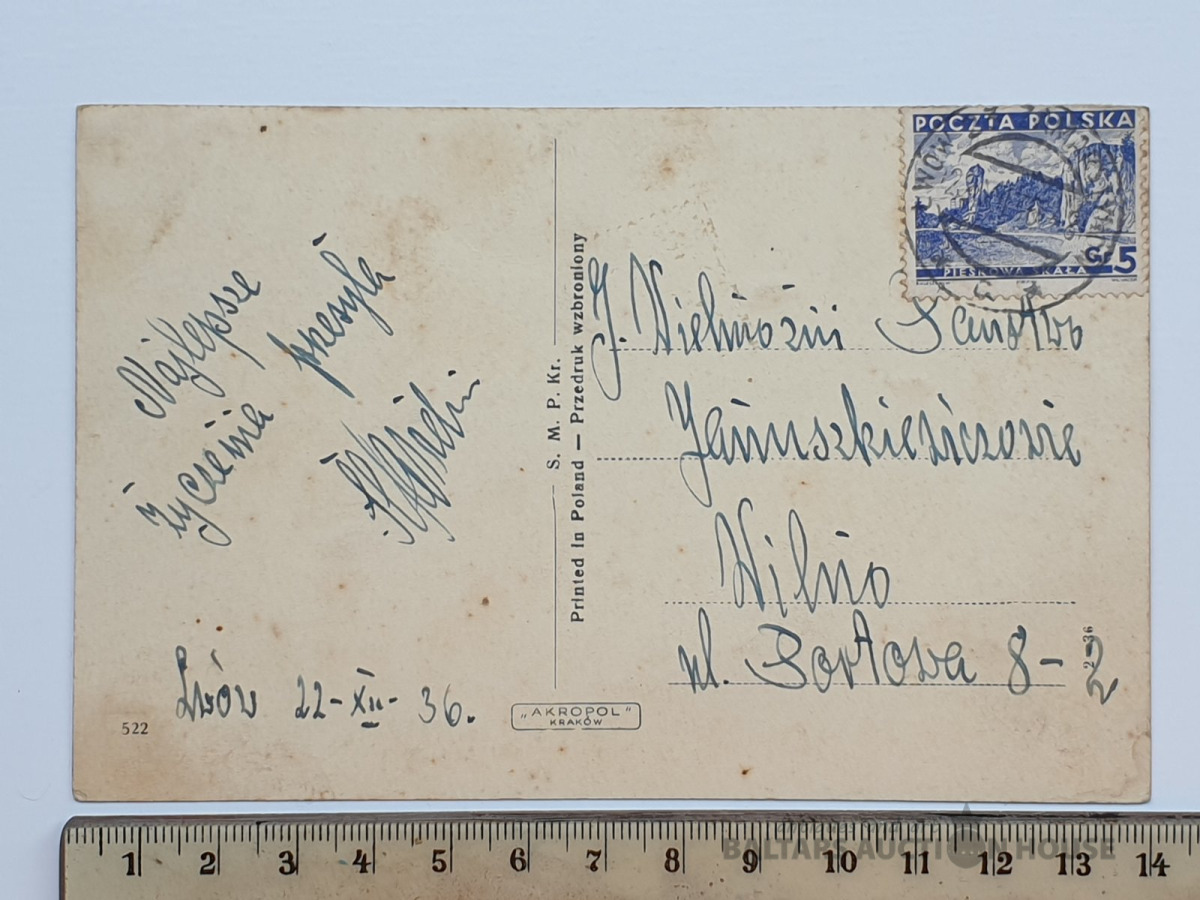 Najlepsze
życzenia przesyła
Lwów 22-XII-36.
522
"AKROPOL"
KRAKÓW
S. M. P. Kr.
Printed in Poland — Przedruk wzbroniony
POCZTA POLSKA
Gr 5
PIESKOWA SKAŁA
LWÓW
J. Wielmożni Państwo
Januszkiewiczowie
Wilno
ul. Portowa 8-2
1 2 3 4 5 6 7 8 9 10 11 12 13 14
BALTAPS AUCTION HOUSE